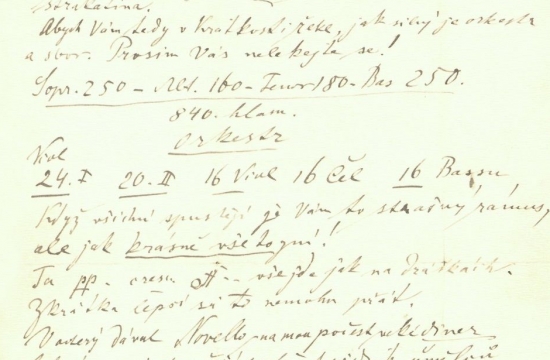 Abych Vám tedy v krátkosti řekl, jak silný je orkestr
a sbor. Prosím Vás nelekejte se!
Sopr. 250 – Alt. 160 – Tenor 180 – Bas 250.
840. hlasů.
Orkestr
Viol
24. I 20. II 16 Viol 16 Čel 16 Bassů
Když všichni spustějí je Vám to strašný rámus,
ale jak krásně vše to zní!
Ta pp. – cresc ff – – vše jde jak na drátkách.
Zkrátka lepší si to nemohu přát.
Včera dával Novello, na mou počest veliké diner